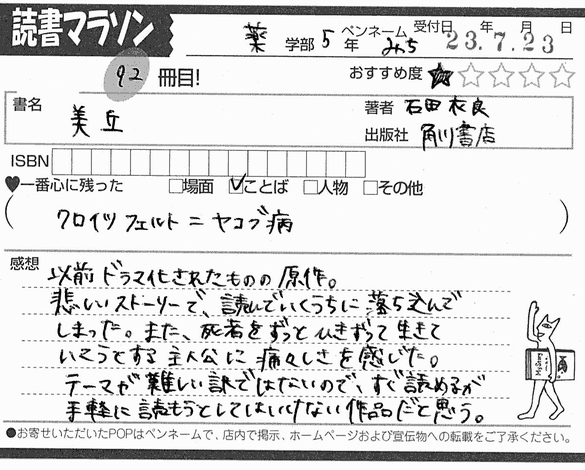 読書マラソン
薬 学部 5 年 ペンネーム みち 受付日 23年 7月 23日
92 冊目! おすすめ度 ★☆☆☆☆
書名 美丘
著者 石田衣良
出版社 角川書店
ISBN
♥一番心に残った □場面 ☑ことば □人物 □その他
(クロイツフェルト=ヤコブ病)
感想
以前ドラマ化されたものの原作。
悲しいストーリーで、読んでいくうちに落ち込んで
しまった。また、死者をずっとひきずって生きて
いこうとする主人公に痛々しさを感じた。
テーマが難しい訳ではないので、すぐ読めるが
手軽に読もうとしてはいけない作品だと思う。
●お寄せいただいたPOPはペンネームで、店内で掲示、ホームページおよび宣伝物への転載をご了承ください。